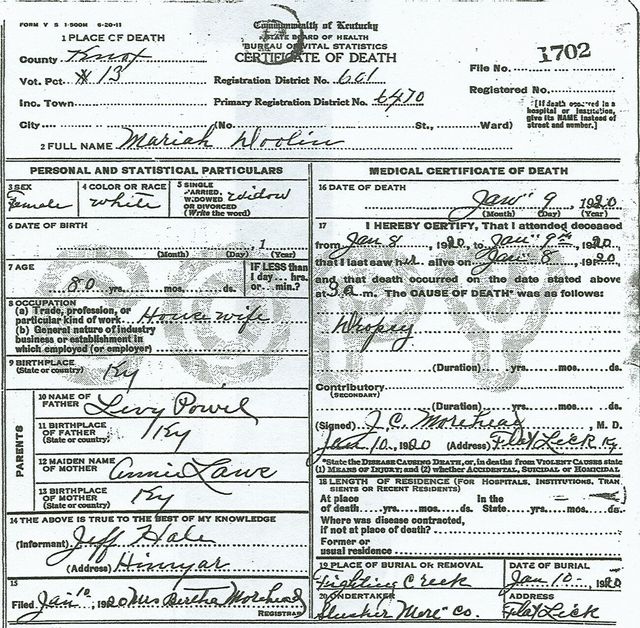 FORM V S 1-500M 6-20-11
Commonwealth of Kentucky
STATE BOARD OF HEALTH
BUREAU OF VITAL STATISTICS
CERTIFICATE OF DEATH
1 PLACE OF DEATH
County Knox
Vot. Pct. # 13
Inc. Town
City (No. St., Ward)
Registration District No. 601
Primary Registration District No. 6470
File No. 1702
Registered No.
[If death occurred in a
hospital or institution,
give its NAME instead of
street and number.]
2 FULL NAME Mariah Woolin
PERSONAL AND STATISTICAL PARTICULARS
3 SEX
Female
4 COLOR OR RACE
White
5 SINGLE
MARRIED,
WIDOWED
OR DIVORCED
(Write the word)
Widow
6 DATE OF BIRTH
, 1
(Month) (Day) (Year)
7 AGE
80 yrs. mos. ds.
IF LESS than
1 day ... hrs.
or ... min.?
8 OCCUPATION
(a) Trade, profession, or
particular kind of work House wife
(b) General nature of industry
business or establishment in
which employed (or employer)
9 BIRTHPLACE
(State or country)
Ky
PARENTS
10 NAME OF
FATHER
Levy Powil
11 BIRTHPLACE
OF FATHER
(State or country)
Ky
12 MAIDEN NAME
OF MOTHER
Annie Lawe
13 BIRTHPLACE
OF MOTHER
(State or country)
Ky
14 THE ABOVE IS TRUE TO THE BEST OF MY KNOWLEDGE
(Informant) Jeff Hale
(Address) Hinnyar
15
Filed Jan 10, 1920 Mrs Bertha Morehead
REGISTRAR
MEDICAL CERTIFICATE OF DEATH
16 DATE OF DEATH
Jan 9 1920
(Month) (Day) (Year)
17 I HEREBY CERTIFY, That I attended deceased
from Jan 8, 1920, to Jan 9th, 1920
that I last saw her alive on Jan 8, 1920
and that death occurred on the date stated above
at 3 a. m. The CAUSE OF DEATH* was as follows:
Dropsy
(Duration) yrs. mos. ds.
Contributory
(SECONDARY)
(Duration) yrs. mos. ds.
(Signed) J. C. Morehead, M. D.
Jan 10, 1920 (Address) Flat Lick Ky
*State the DISEASE CAUSING DEATH, or, in deaths from VIOLENT CAUSES state
(1) MEANS OF INJURY; and (2) whether ACCIDENTAL, SUICIDAL or HOMICIDAL
18 LENGTH OF RESIDENCE (FOR HOSPITALS, INSTITUTIONS, TRANSIENTS OR RECENT RESIDENTS)
At place In the
of death yrs. mos. ds. State yrs. mos. ds.
Where was disease contracted,
if not at place of death?
Former or
usual residence
19 PLACE OF BURIAL OR REMOVAL
Fighting Creek
DATE OF BURIAL
Jan 10 1920
20 UNDERTAKER
Slusher More Co.
ADDRESS
Flat Lick
COPY